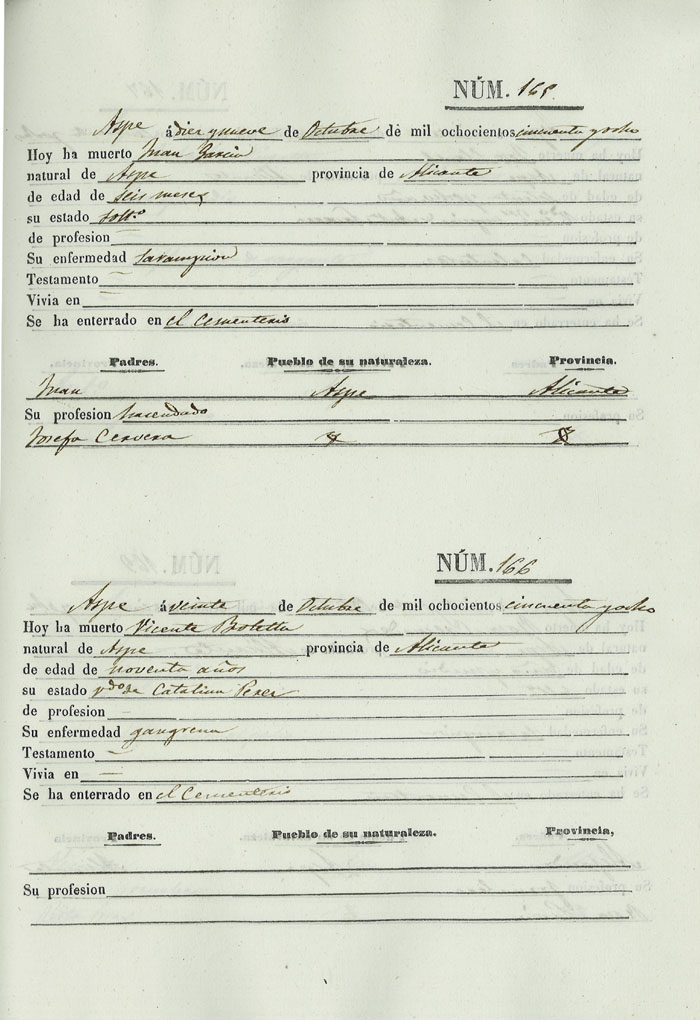 NÚM. 165.
Aspe á diez y nueve de Octubre de mil ochocientos cincuenta y ocho
Hoy ha muerto Juan Garcia
natural de Aspe provincia de Alicante
de edad de seis meses
su estado solt.o
de profesion —
Su enfermedad Sarampion
Testamento —
Vivia en —
Se ha enterrado en el Cementerio
Padres. Pueblo de su naturaleza. Provincia.
Juan Aspe Alicante
Su profesion hacendado
Josefa Cervera
NÚM. 166
Aspe á veinte de Octubre de mil ochocientos cincuenta y ocho
Hoy ha muerto Vicente Botella
natural de Aspe provincia de Alicante
de edad de noventa años
su estado v.do de Catalina Perez
de profesion —
Su enfermedad gangrena
Testamento —
Vivia en —
Se ha enterrado en el Cementerio
Padres. Pueblo de su naturaleza. Provincia,
Su profesion